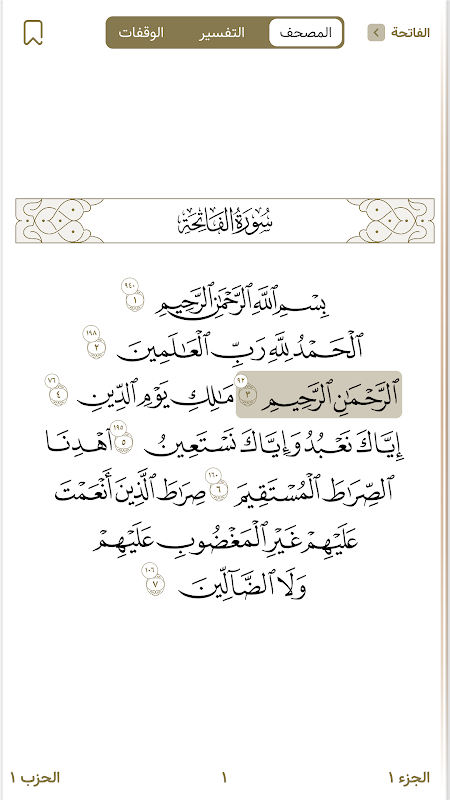 الفاتحة
المصحف التفسير الوقفات
سُورَةُ الفَاتِحَةِ
٩٤٠
بِسْمِ ٱللَّهِ ٱلرَّحْمَٰنِ ٱلرَّحِيمِ ١
١٩٨
ٱلْحَمْدُ لِلَّهِ رَبِّ ٱلْعَٰلَمِينَ ٢
٩٢ ٧٦
ٱلرَّحْمَٰنِ ٱلرَّحِيمِ ٣ مَٰلِكِ يَوْمِ ٱلدِّينِ ٤
١٩٥
إِيَّاكَ نَعْبُدُ وَإِيَّاكَ نَسْتَعِينُ ٥ ٱهْدِنَا
١٦٠
ٱلصِّرَٰطَ ٱلْمُسْتَقِيمَ ٦ صِرَٰطَ ٱلَّذِينَ أَنْعَمْتَ
عَلَيْهِمْ غَيْرِ ٱلْمَغْضُوبِ عَلَيْهِمْ
١٠٦
وَلَا ٱلضَّآلِّينَ ٧
الجزء ١ ١ الحزب ١